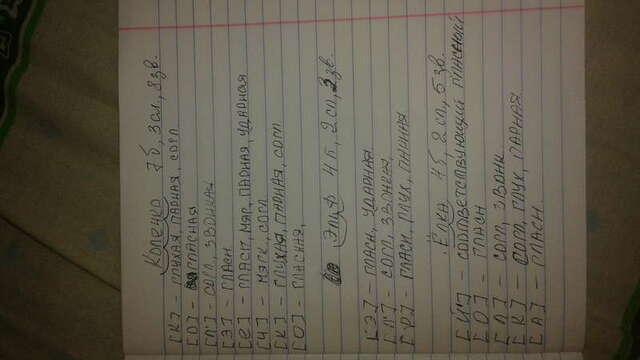 Коленко 7б, 3сл, 8зв.
[К] - глухая, парная, согл
[О] - гласная
[Л] - согл, звонкая
[Э] - гласн
[е] - гласн, мяг, парная, ударная
[Ч] - мягк, согл
[К] - глухня, парная, согл
[О] - гласная,
Эльф 4б, 2сл, зв.
[Э] - гласн, ударная
[Л'] - согл, звонкая,
[Ф] - гласн, глух,
Ёлка 4б 2сл, 5зв.
[Й'] - соответствующий
[О] - гласн
[Л] - согл, звонк
[К] - согл, глух, парная
[А] - гласн.